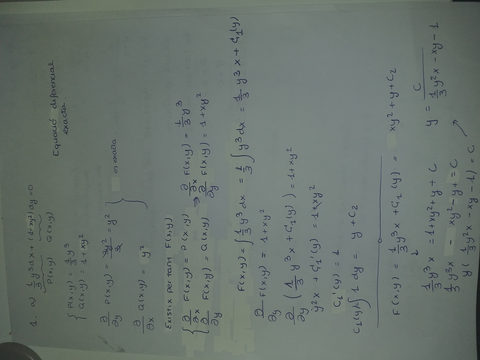 1. a) 1/3 y³dx + (1+xy²)dy = 0
P(x,y) Q(x,y)
Equació diferencial
exacta
{ P(x,y) = 1/3 y³
Q(x,y) = 1+xy²
∂/∂y P(x,y) = 3y²/3 = y²
∂/∂x Q(x,y) = y²
} exacta
Existeix F(x,y)
{ ∂/∂x F(x,y) = P(x,y)
∂/∂y F(x,y) = Q(x,y)
→ ∂/∂x F(x,y) = 1/3 y³
∂/∂y F(x,y) = 1+xy²
F(x,y) = ∫ 1/3 y³ dx = 1/3 ∫ y³ dx = 1/3 y³ x + C₁(y)
∂/∂y F(x,y) = 1+xy²
∂/∂y (1/3 y³ x + C₁(y)) = 1+xy²
y²x + C₁'(y) = 1+xy²
C₁'(y) = 1
C₁(y) ∫ 1 dy = y + C₂
F(x,y) = 1/3 y³x + C₁(y) = xy² + y + C₂
1/3 y³x = 1+xy²+y+C
1/3 y³x - xy² - y + = C
y (1/3 y²x - xy - 1) = C
→
y = C / (1/3 y²x - xy - 1)